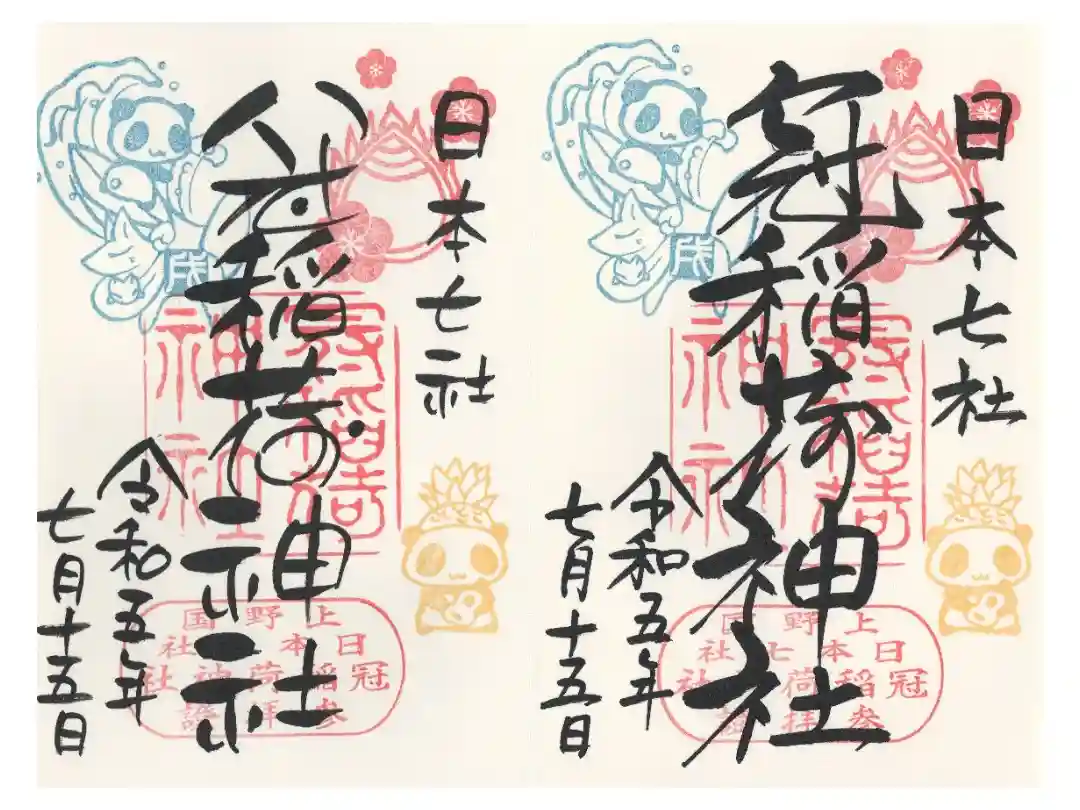 日本七社
冠稲荷神社
令和五年
七月十五日
上野国
日本七社
冠稲荷神社
参拝
日本七社
稲荷神社
令和五年
七月十五日
上野国
日本社
冠稲荷神社
参拝證